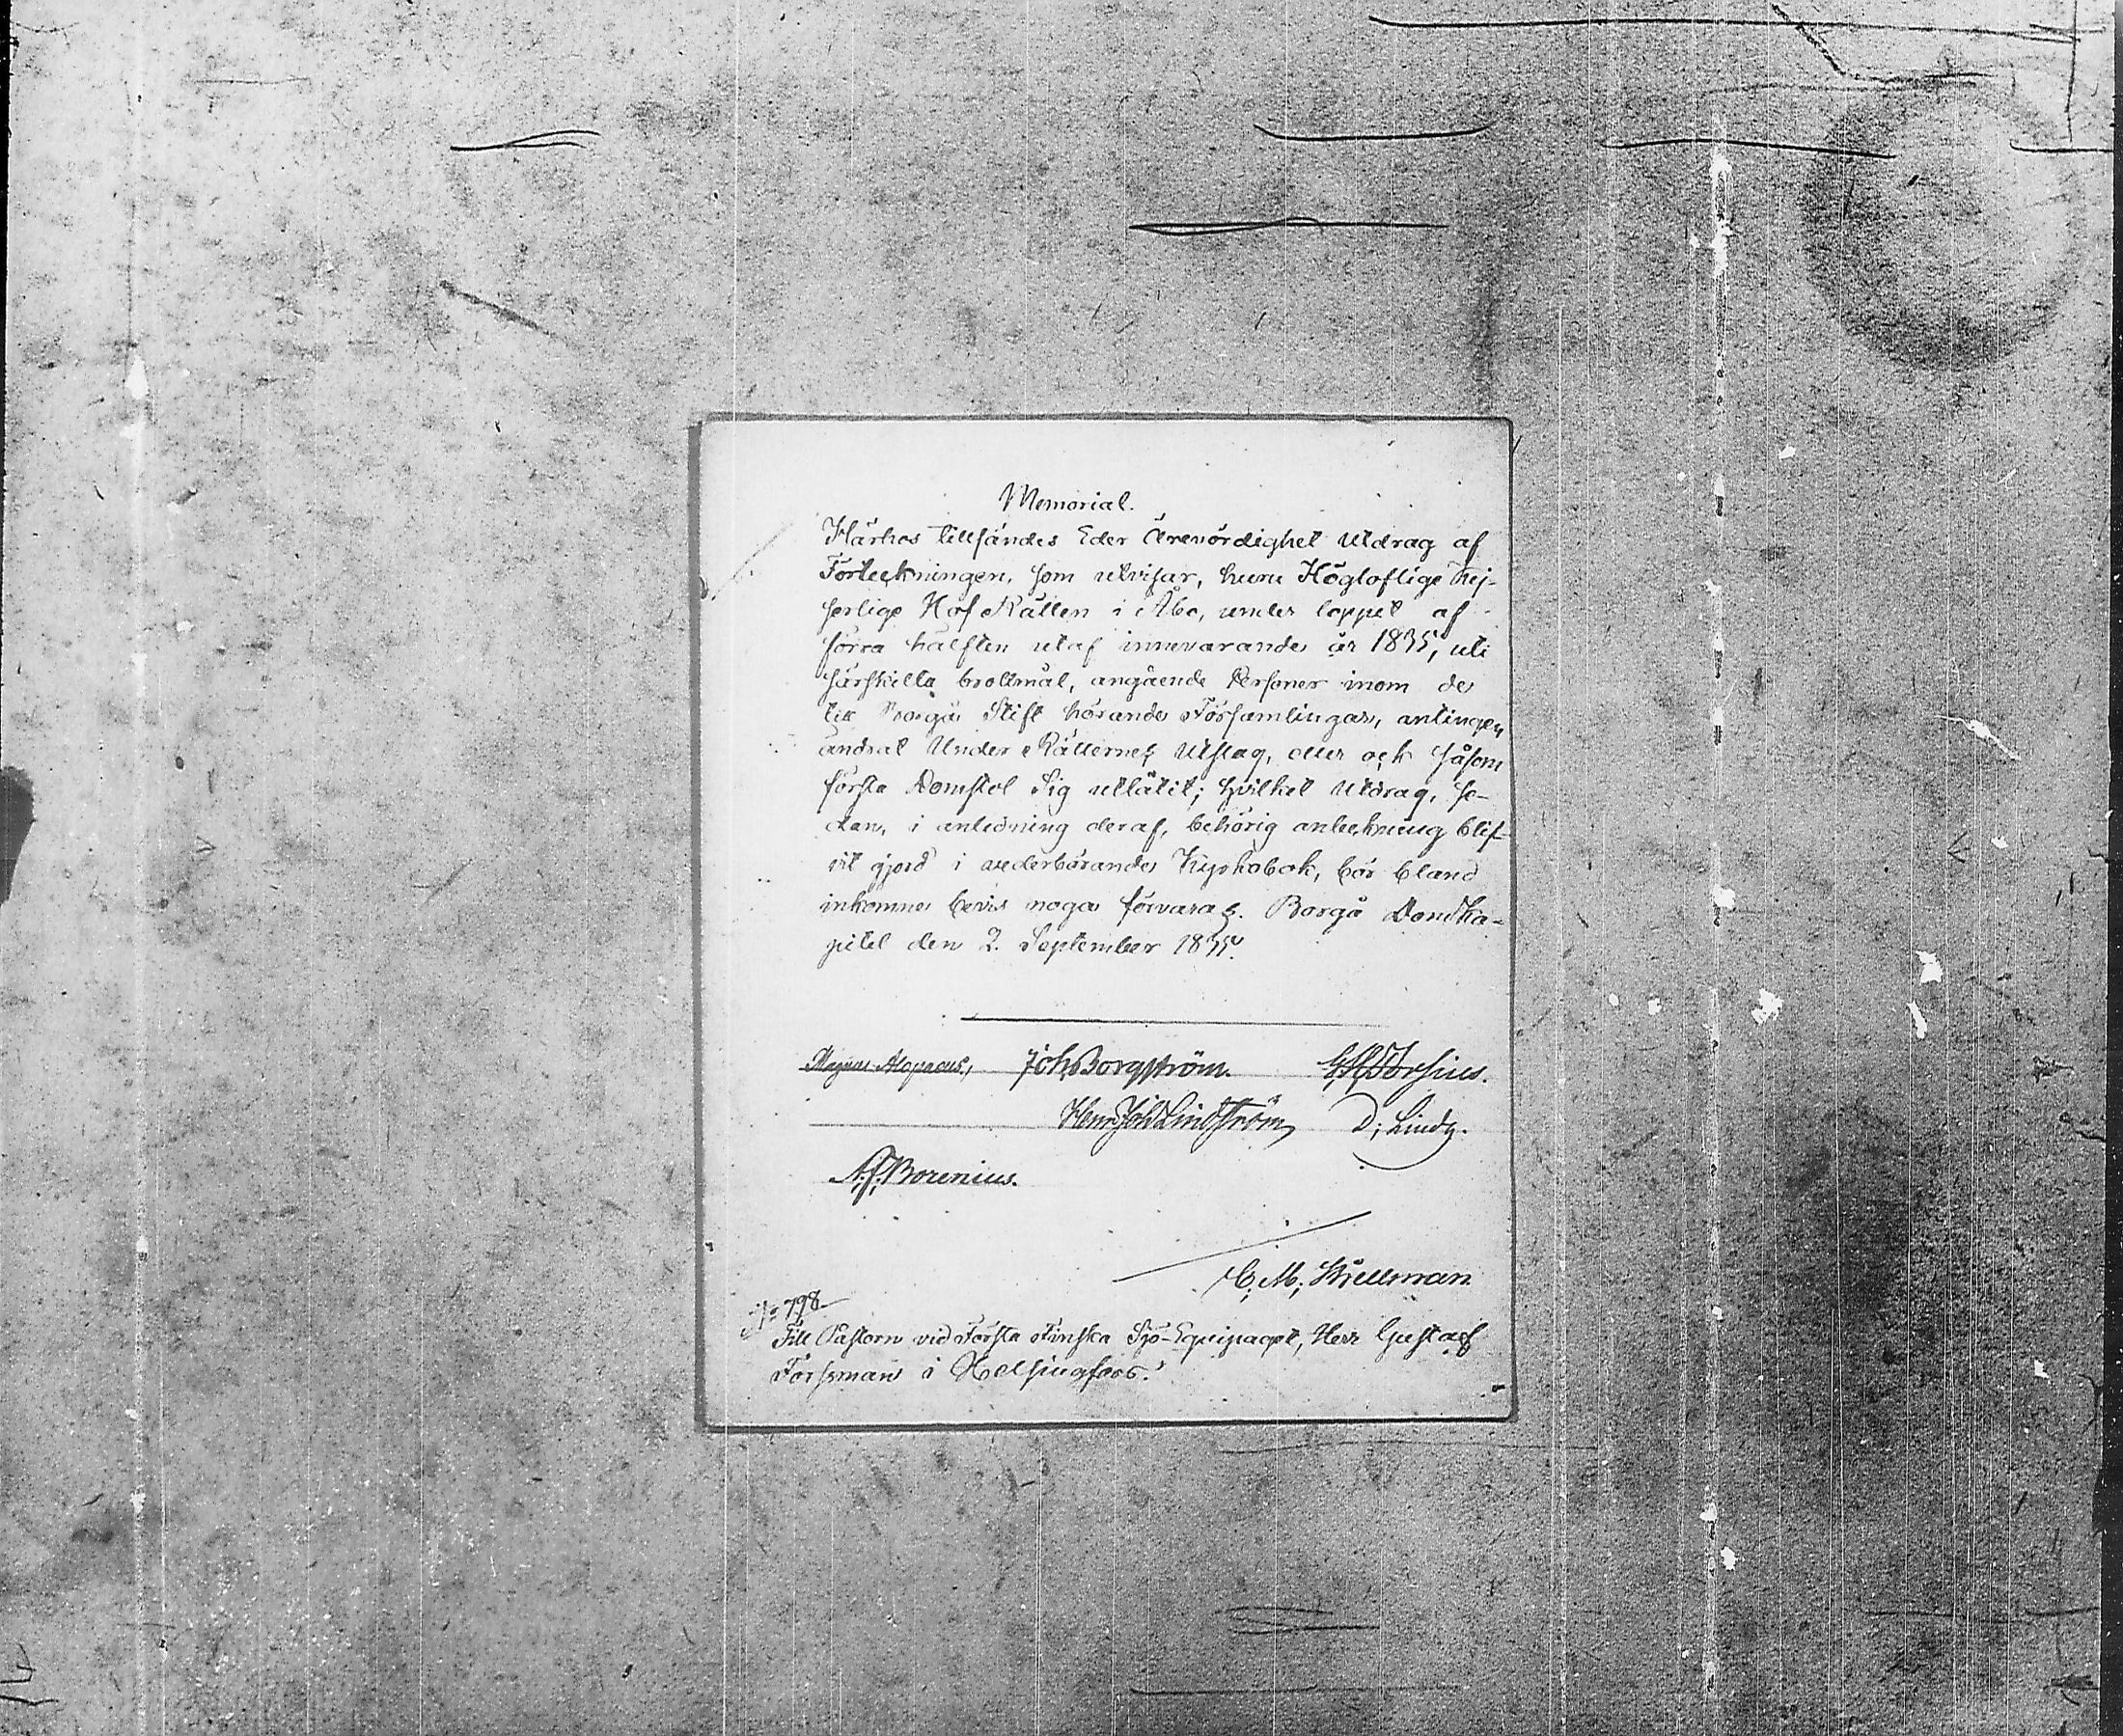 Memorial.
Härhos tillsändes Eder Ärevördighet Utdrag af
Förteckningen, som utvisar, huru Högloflige Kej-
serlige Hof Rätten i Åbo, under loppet af
förra hälften utaf innevarande år 1835, uti
särskilta brottmål, angående Personer inom de
till Borgå Stift hörande Församlingar, antingen
ändrat Under Rätternes Utslag, eller ock såsom
första Domstol Sig utlåtit; hvilket Utdrag, se-
dan, i anledning deraf, behörig anteckning blif-
vit gjord i vederbörande Kyrkobok, bör bland
inkomne bevis noga förvaras. Borgå Domka-
pitel den 2. September 1835.
Magnus Alopaeus, Joh. Borgström.
Henr. Joh. Lindström, D. Lindh.
A. F. Borenius.
C. M. Kiellman
No 798.
Till Pastorn vid Första Finska Sjö-Equipaget, Herr Gustaf
Forsman i Helsingfors.